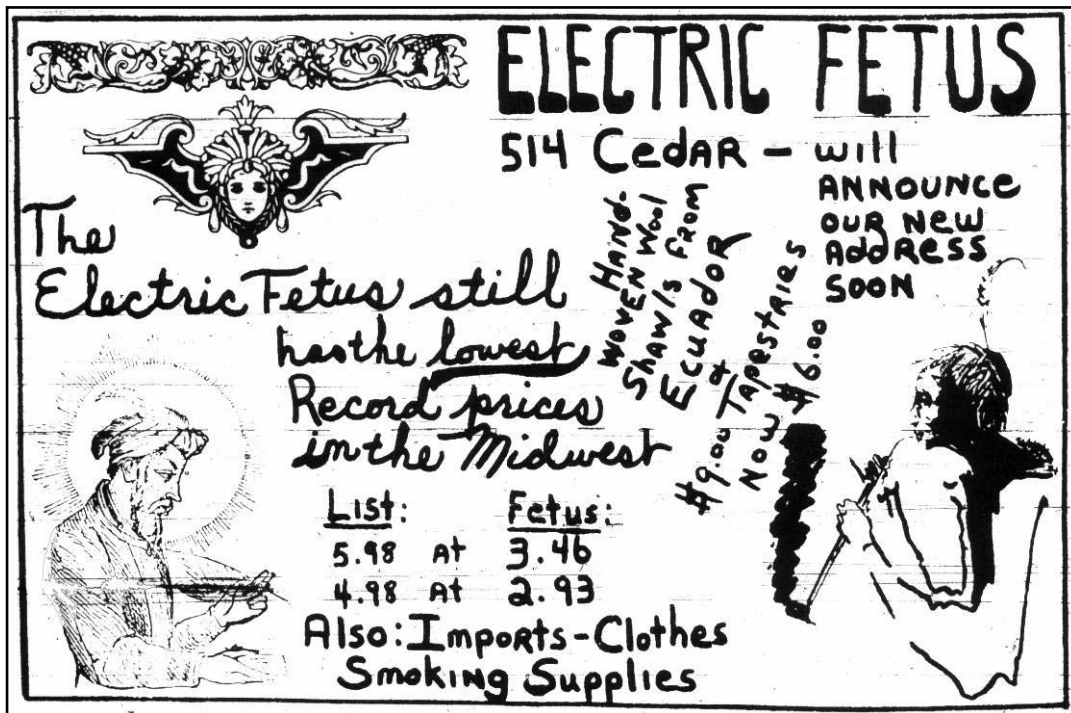 ELECTRIC FETUS
514 CEDAR - will
ANNOUNCE
OUR NEW
ADDRESS
SOON
The
Electric Fetus still
has the lowest
Record prices
in the Midwest
HAND-
WOVEN Wool
Shawls FROM
ECUADOR
&
$9.00 TAPESTRIES
NOW $6.00
List: Fetus:
5.98 At 3.46
4.98 At 2.93
Also: Imports-Clothes
Smoking Supplies